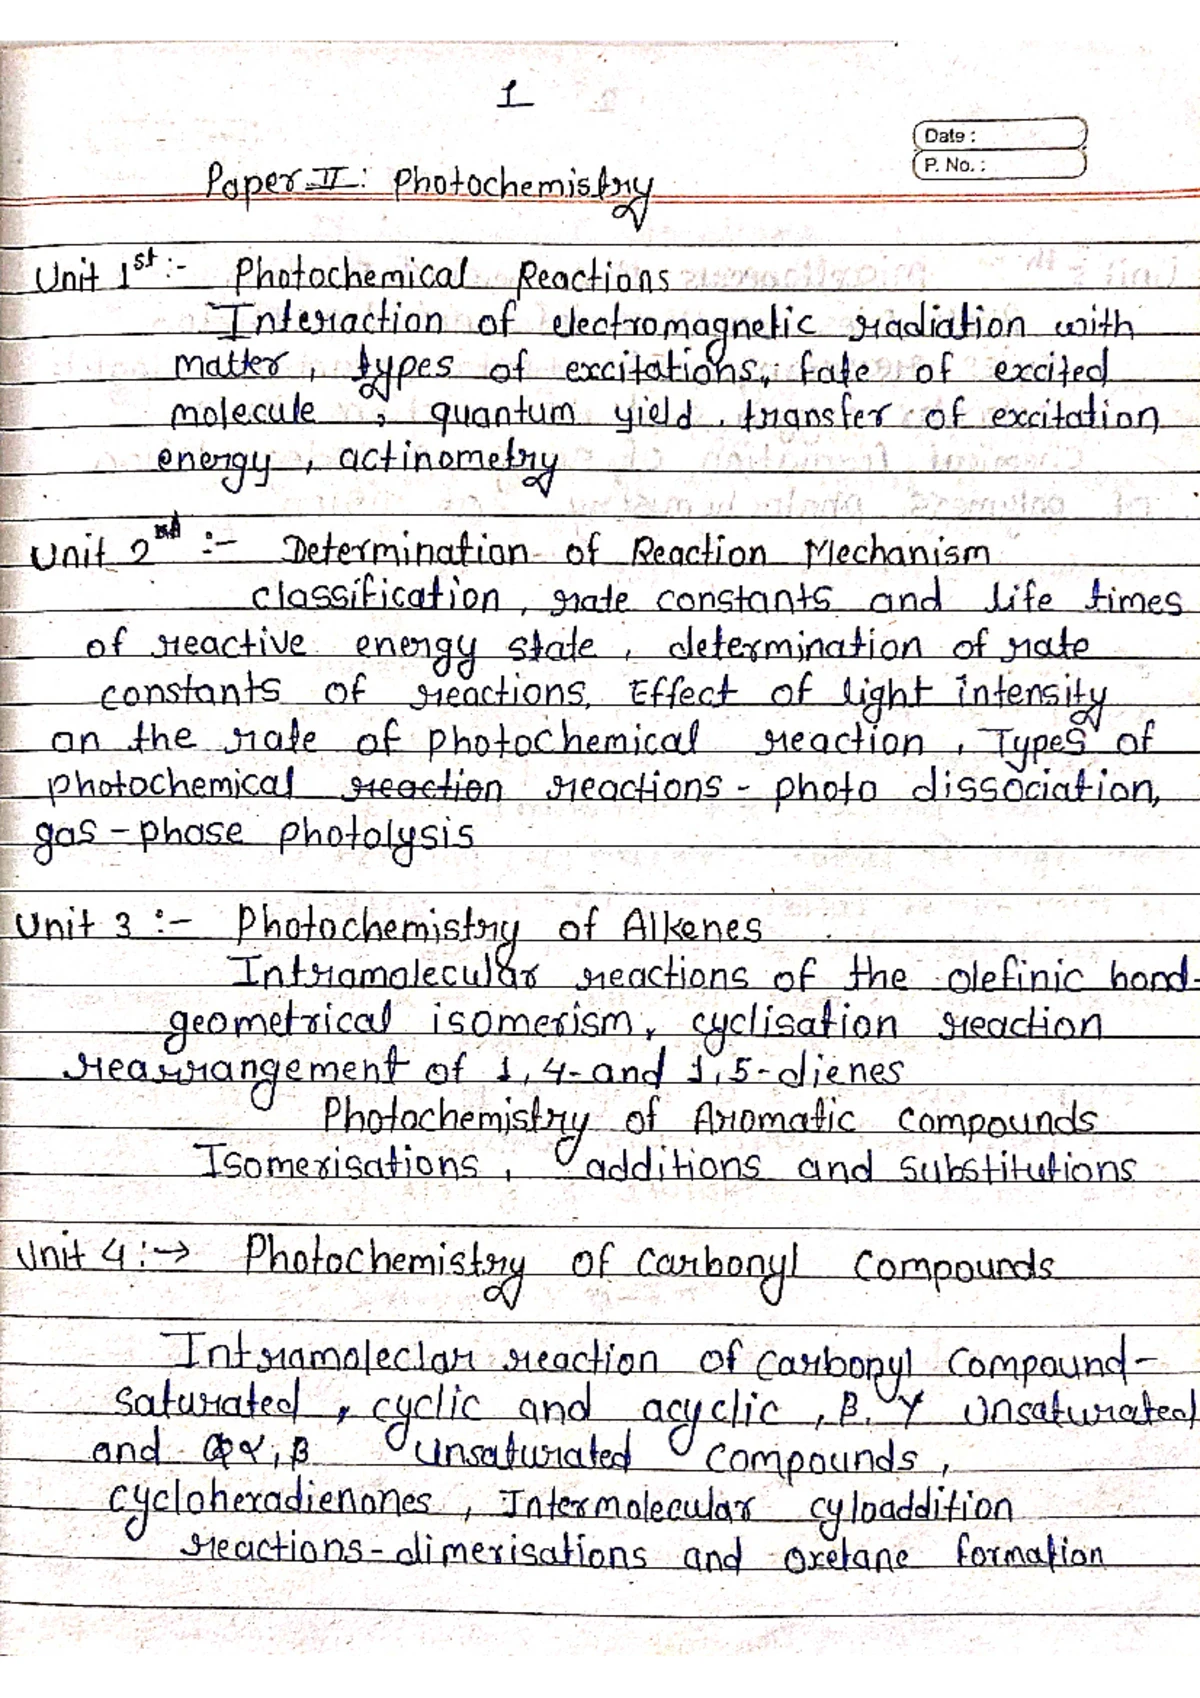 1
Date :
P. No. :
Paper-II: Photochemistry
Unit 1st :- Photochemical Reactions
Interaction of electromagnetic radiation with
matter, types of excitations, fate of excited
molecule, quantum yield, transfer of excitation
energy, actinometry
Unit 2nd :- Determination of Reaction Mechanism
classification, rate constants and life times
of reactive energy state, determination of rate
constants of reactions. Effect of light intensity
on the rate of photochemical reaction, Types of
photochemical reaction reactions - photo dissociation,
gas - phase photolysis
Unit 3 :- Photochemistry of Alkenes
Intramolecular reactions of the olefinic bond-
geometrical isomerism, cyclisation reaction
rearrangement of 1,4-and 1,5-dienes
Photochemistry of Aromatic compounds
Isomerisations, additions and substitutions
Unit 4 :→ Photochemistry of Carbonyl Compounds
Intramoleclar reaction of Carbonyl Compound-
saturated, cyclic and acyclic, β, γ Unsaturated
and α, β Unsaturated Compounds,
cyclohexadienones, Intermolecular cyloaddition
reactions-dimerisations and oxetane formation